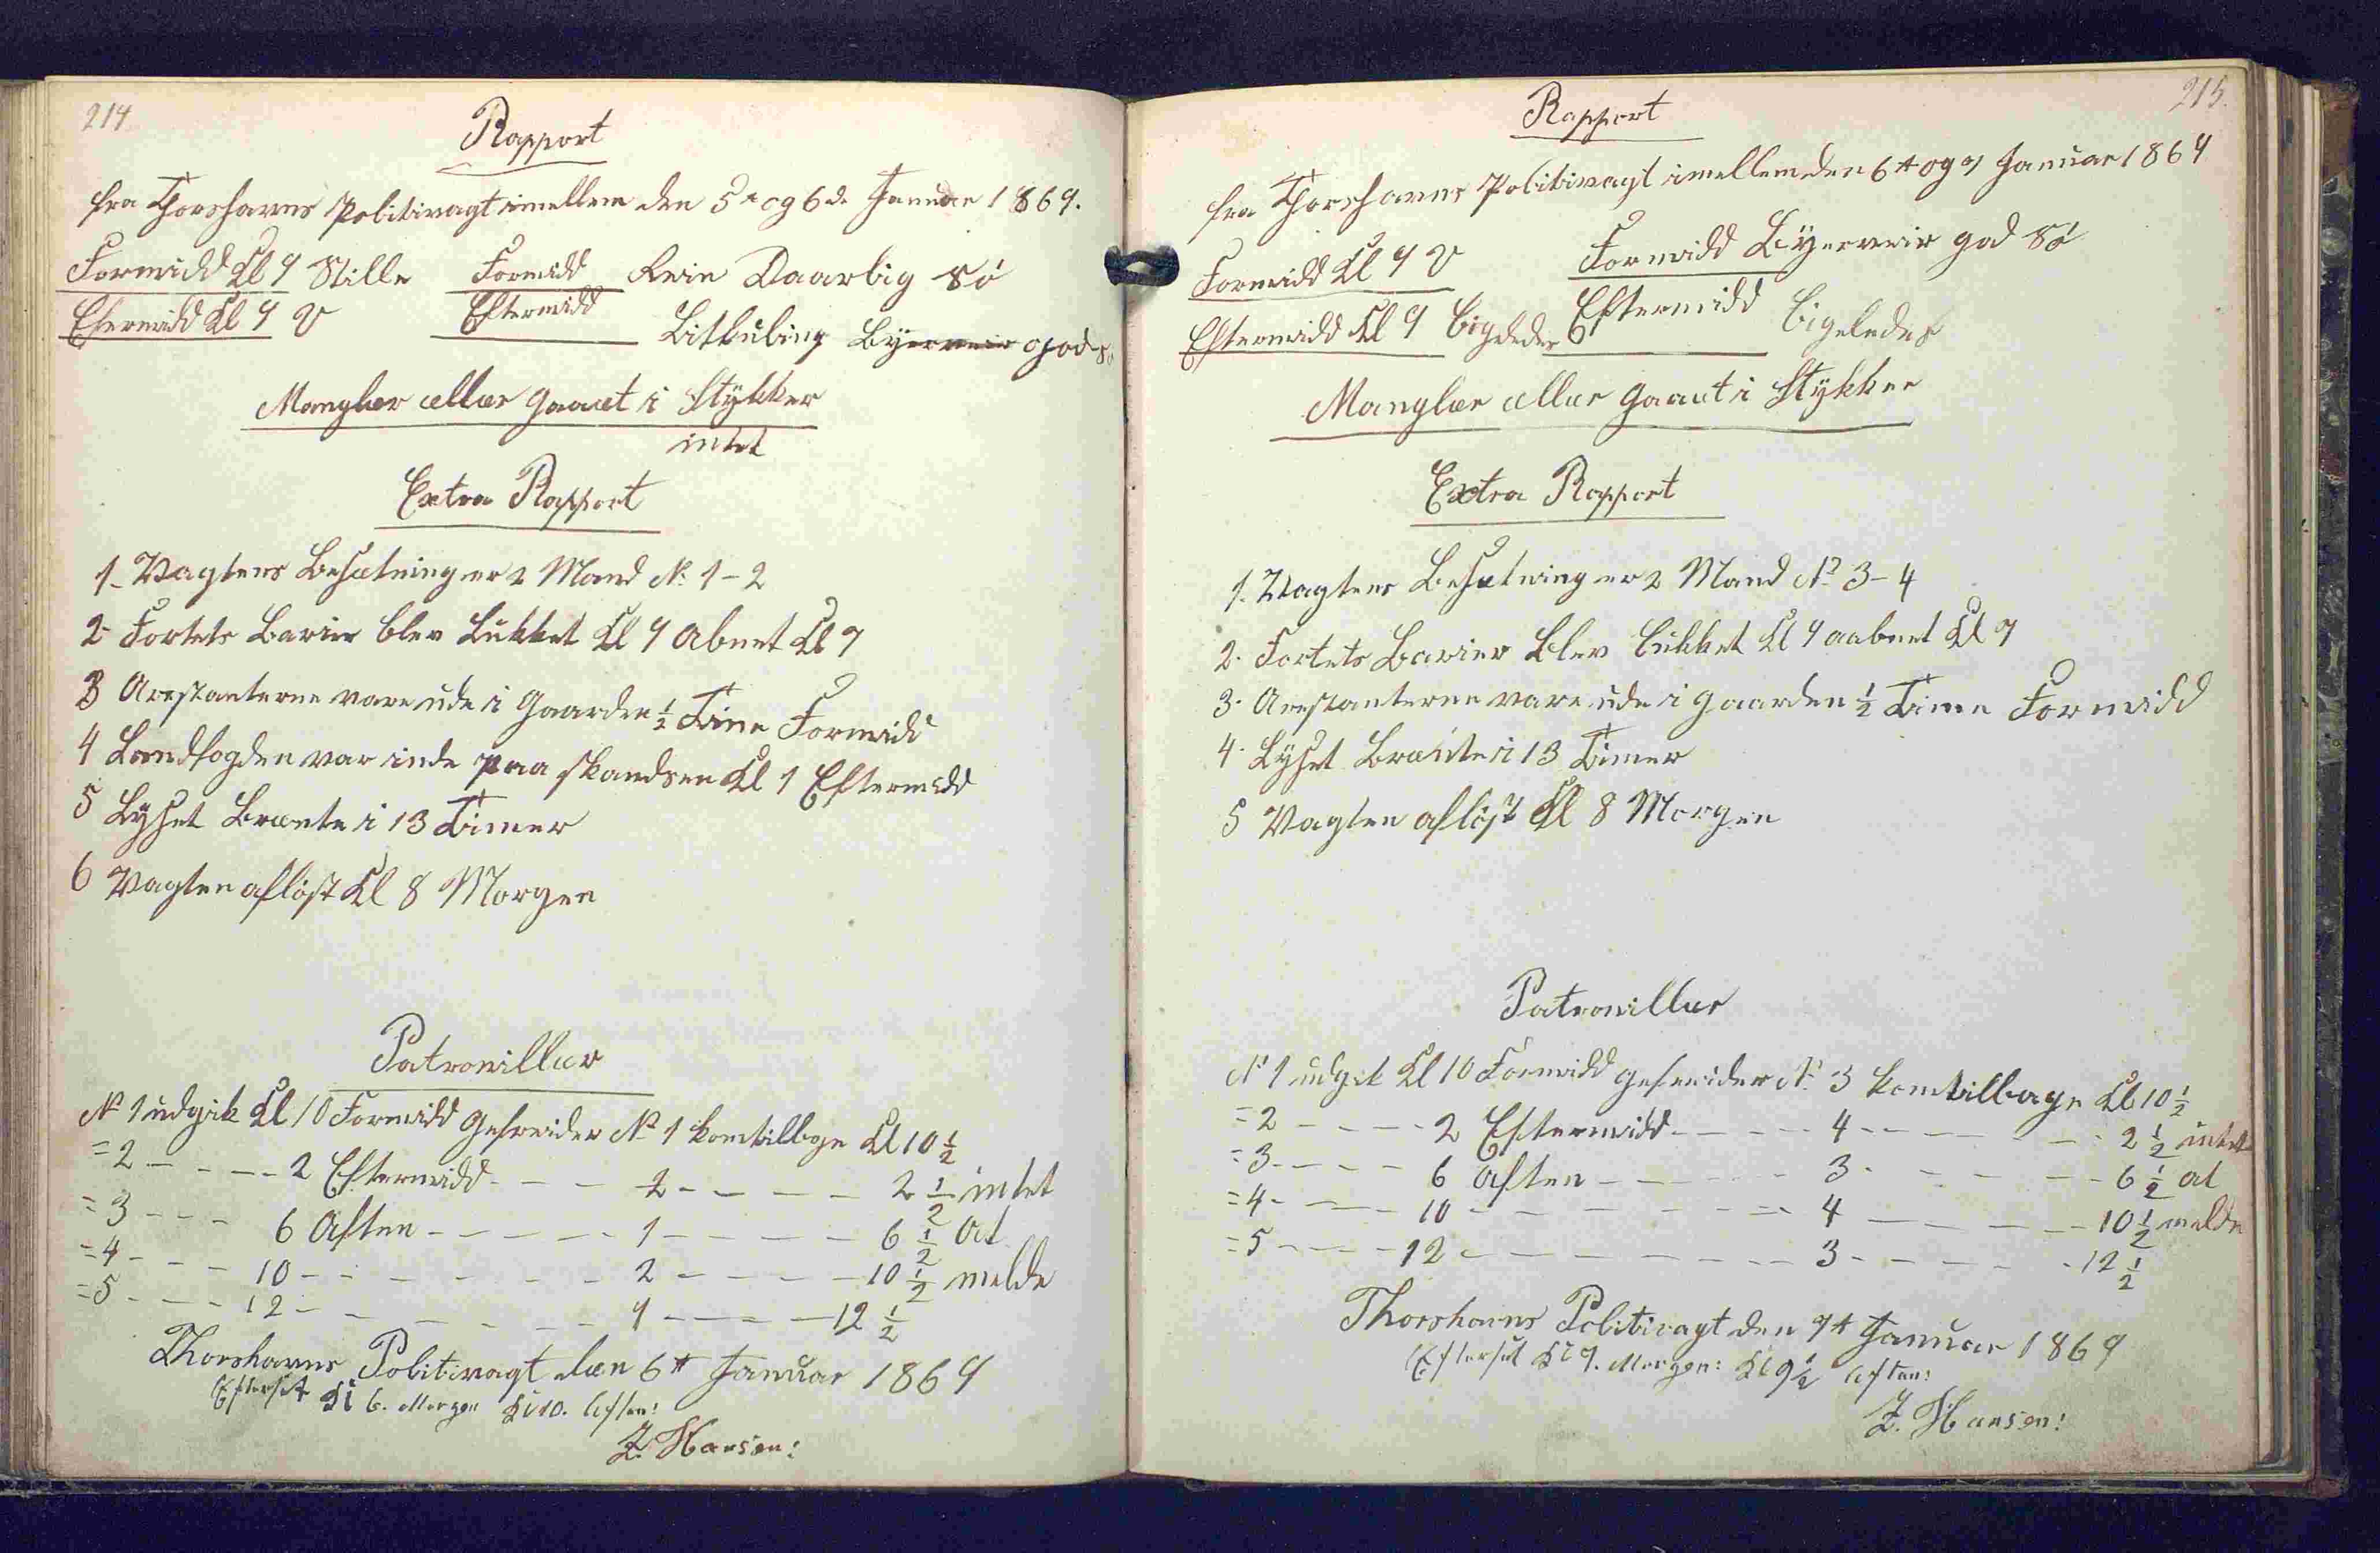 214
Rapport
fra Thorshavns Politivagt imellem den 5te og 6te Januar 1869.
Formidd Kl 9 Stille Formidd Rein Daarlig Sö
Efermidd Kl 9 V Eftermidd
Litkuling Byerveir god Sö
Mangler eller gaaet i Stykker
intet
Extra Rapport
1. Vagtens Besætning er 2 Mand No 1-2
2. Fortets Barier blev Lukket Kl 9 Abnet Kl 7
3 Arestanterne vare ude i Gaarden ½ Time Formidd
4 Landfogden var inde paa Skandsen Kl 1 Eftermidd
5 Lyset Brænte i 13 Timer
6 Vagten aflöst Kl 8 Morgen
Patrouiller
No 1 udgik Kl 10 Formidd Gefreider No 1 kom tilbage Kl 10 ½
=2 - - - - 2 Eftermidd - - - 2 - - - - 2 ½ intet
=3 - - - 6 Aften - - - - - 1 - - - - 6 ½ at
=4 - - - 10 - - - - - - 2 - - - - 10 ½ melde
=5 - - - 12 - - - - - - 1 - - - - 12 ½
Thorshavns Politivagt den 6te Januar 1869
Efterset Kl 6. Morgen Kl 10. Aften:
Z. Hansen:
215.
Rapport
fra Thorshavns Politivagt imellem den 6te og 7 Januar 1869
Formidd Kl 9 V Formidd Byerveir god Sö
Eftermidd Kl 9 ligeledes Eftermidd ligeledes
Mangler eller gaaet i Stykker
Extra Rapport
1. Vagtens Besætning er 2 Mand No 3-4
2. Fortets Barier blev lukket Kl 9 aabnet Kl 7
3. Arestanterne vare ude i gaarden ½ Time Formidd
4. Lyset Brænte i 13 Timer
5 Vagten aflöst Kl 8 Morgen
Patrouiller
No 1 udgik Kl 10 Formidd gefreider No 3 kom tilbage Kl 10 ½
=2 - - - - 2 Eftermidd - - - - 4 - - - - - 2 ½ intet
=3 - - - - 6 Aften - - - - - 3 - - - - - 6 ½ at
=4 - - - - 10 - - - - - - 4 - - - - - 10 ½ melde
=5 - - - - 12 - - - - - - 3 - - - - - 12 ½
Thorshavns Politivagt den 7te Januar 1869
Efterset Kl 7. Morgen: Kl 9½ Aften:
Z. Hansen: